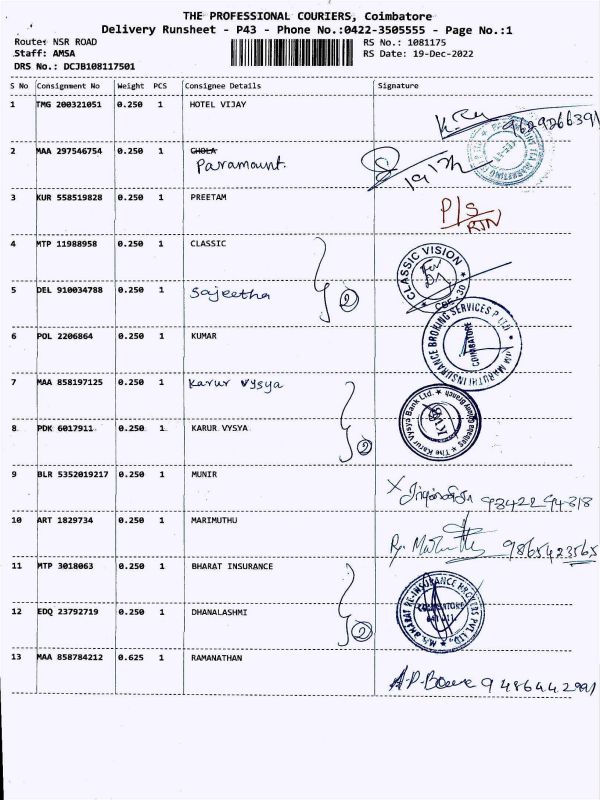 THE PROFESSIONAL COURIERS, Coimbatore
Delivery Runsheet - P43 - Phone No.:0422-3505555 - Page No.:1
Route: NSR ROAD RS No.: 1081175
Staff: AMSA RS Date: 19-Dec-2022
DRS No.: DCJB108117501
S No Consignment No Weight PCS Consignee Details Signature
1 TMG 200321051 0.250 1 HOTEL VIJAY 9629266391
2 MAA 297546754 0.250 1 CHOLA
Paramount. 19/12
3 KUR 558519828 0.250 1 PREETAM P/S
RTN
4 MTP 11988958 0.250 1 CLASSIC CLASSIC VISION For CBE - 30
5 DEL 910034788 0.250 1 Sajeetha 2
6 POL 2206864 0.250 1 KUMAR MARUTHI INSURANCE BROKING SERVICES P LTD COIMBATORE
7 MAA 858197125 0.250 1 Karur Vysya The Karur Vysya Bank Ltd.
8 PDK 6017911 0.250 1 KARUR VYSYA 2
9 BLR 5352019217 0.250 1 MUNIR X 93422 94318
10 ART 1829734 0.250 1 MARIMUTHU 9865423565
11 MTP 3018063 0.250 1 BHARAT INSURANCE M/s. BHARAT RE-INSURANCE BROKERS PVT. LTD. COIMBATORE
12 EDQ 23792719 0.250 1 DHANALASHMI 2
13 MAA 858784212 0.625 1 RAMANATHAN A.P. 9486442991